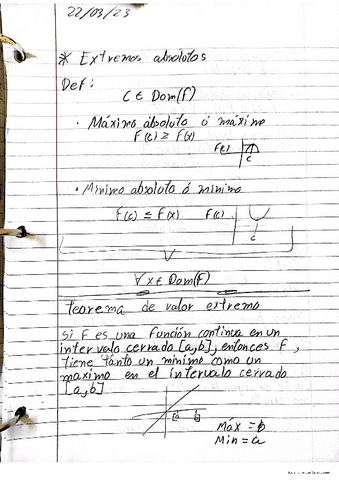 22/03/23
* Extremos absolutos
Def:
C ∈ Dom(f)
· Máximo absoluto ó máximo
F(c) ≥ F(x)
F(c)
c
· Minimo absoluto ó minimo
F(c) ≤ F(x) F(c)
c
∀ x ∈ Dom(F)
Teorema de valor extremo
Si F es una función continua en un
intervalo cerrado [a,b], entonces F,
tiene tanto un minimo como un
maximo en el intervalo cerrado
[a,b]
a b
Max = b
Min = a